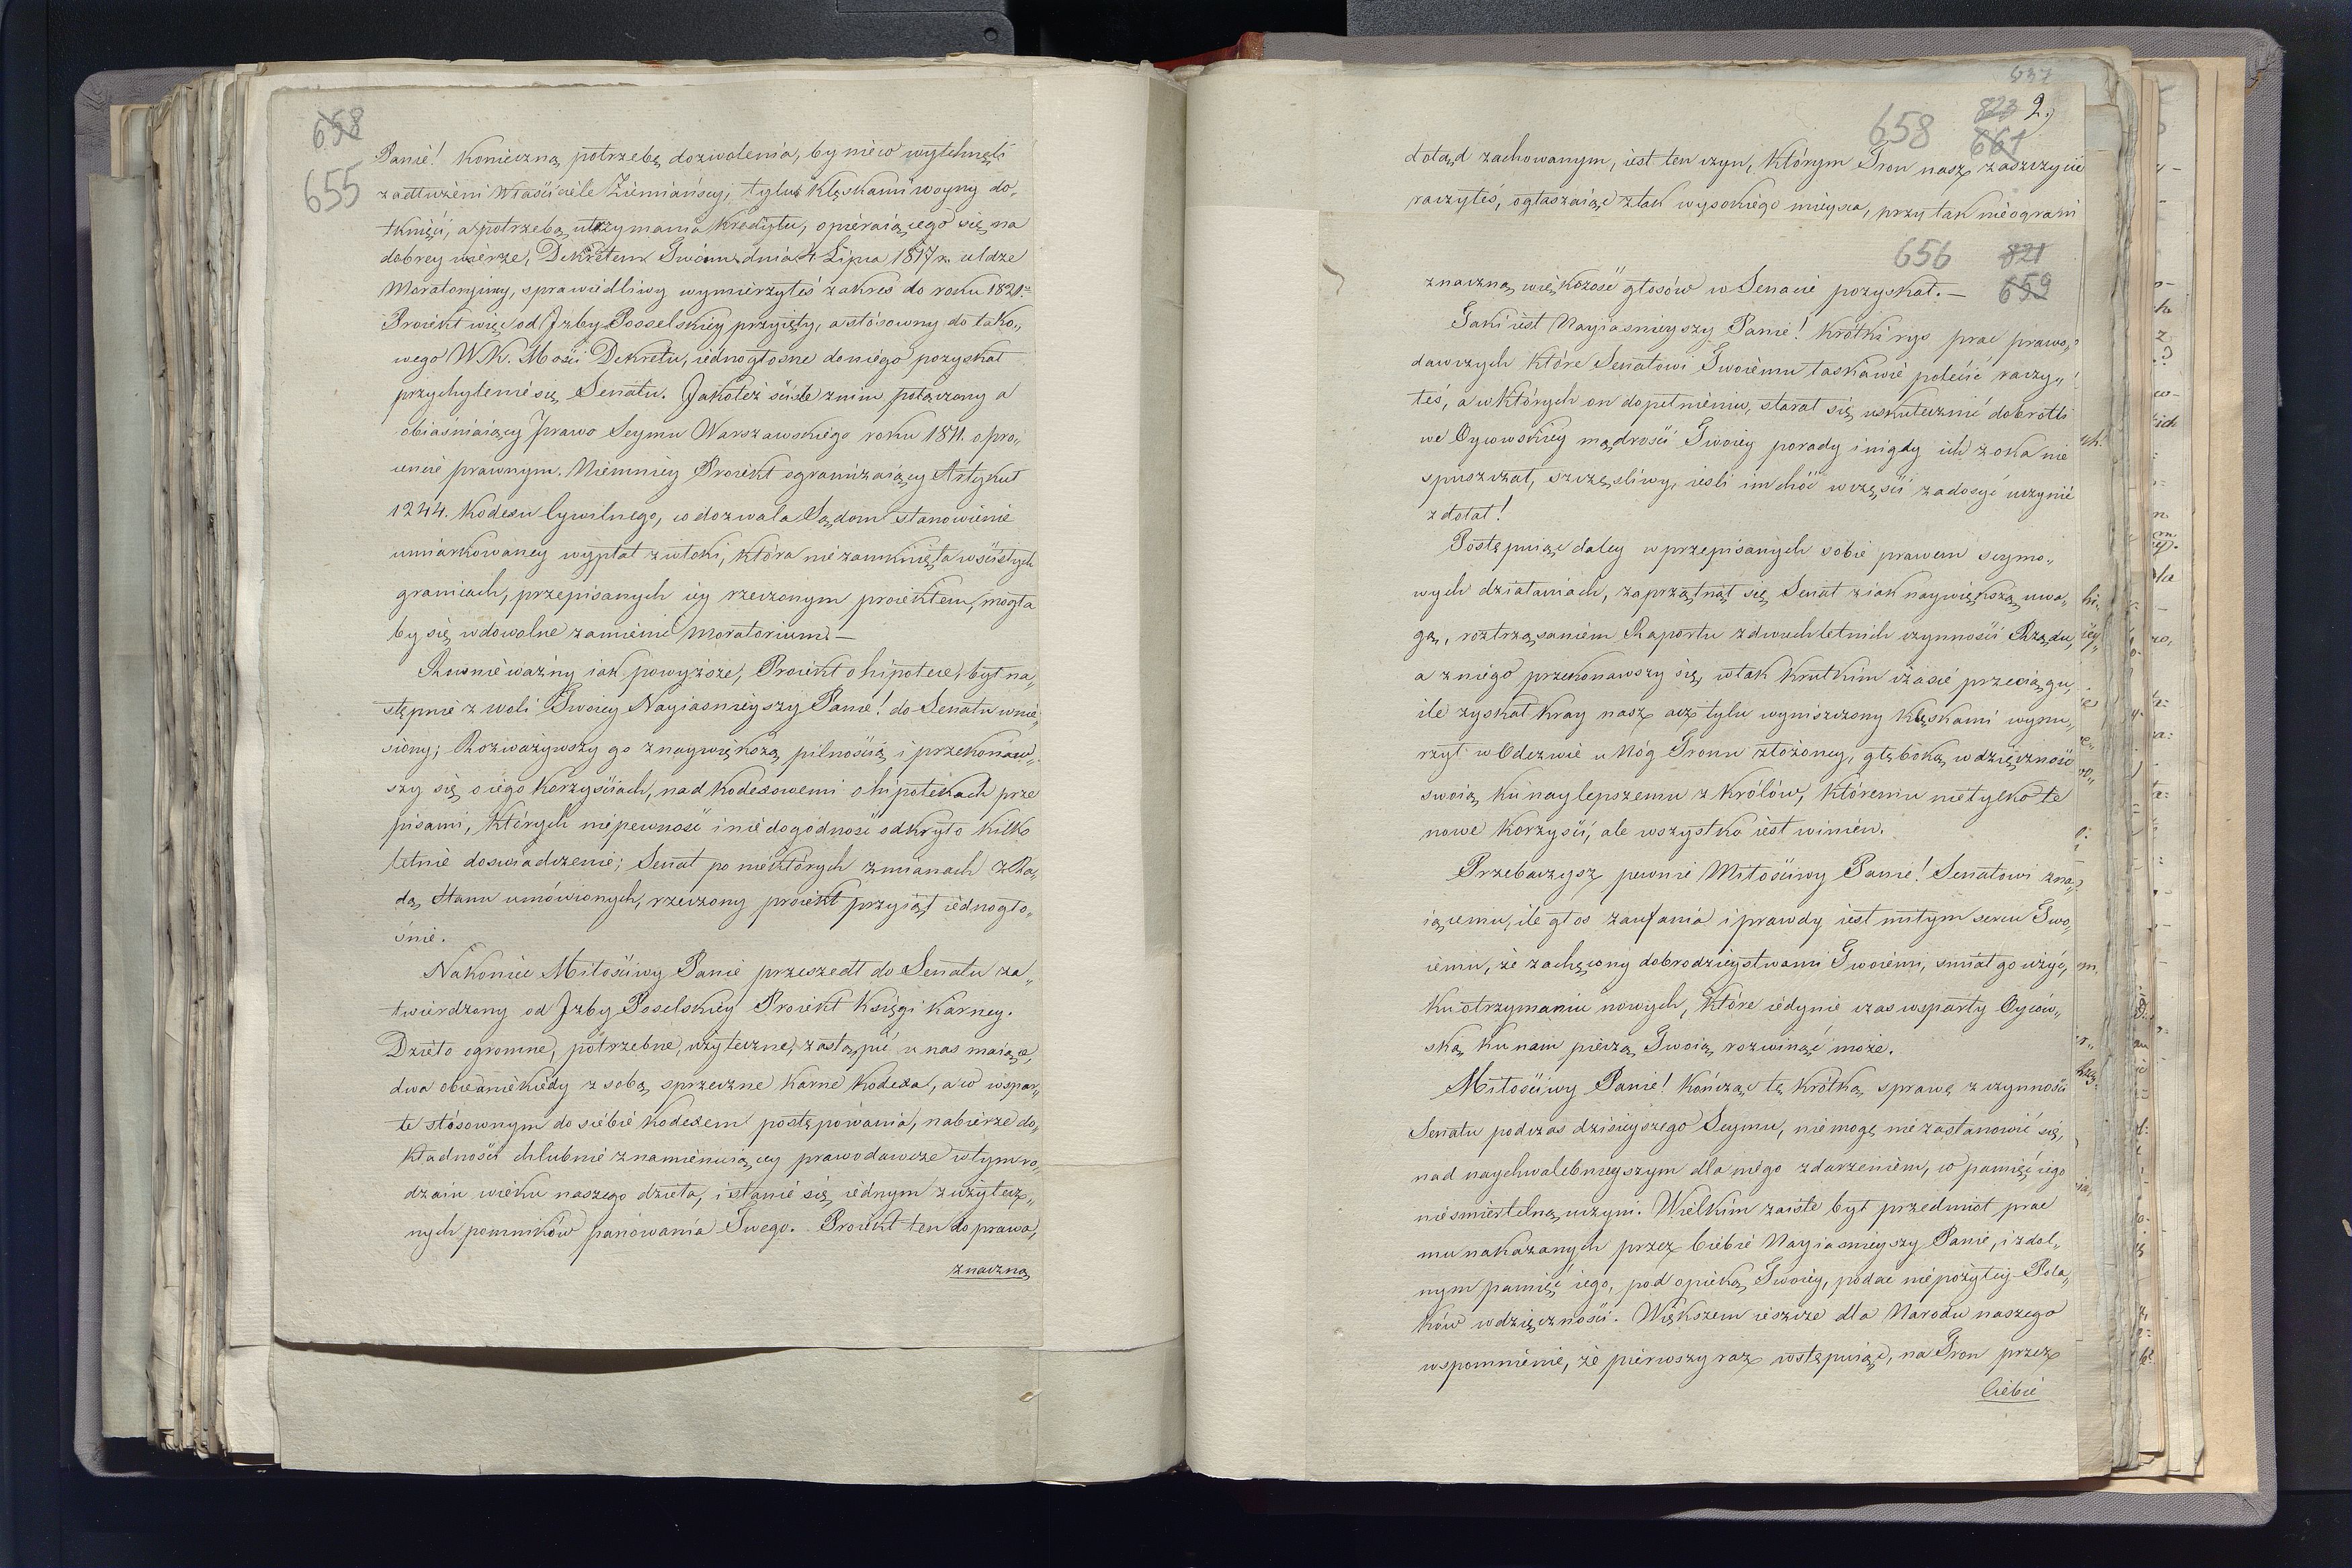 658
655
Panie! Konieczną potrzebę dozwolenia, by nieco wytchnęli
zadłużeni Właściciele Ziemiańscy, tylu klęskami woyny do„
tknięci, a potrzebą utrzymania kredytu, opieraiącego się na
dobrey wierze, Dekretem Twóim dnia 4 Lipca 1817 r. uldze
Moratoryiney, sprawiedliwy wymierzyłeś zakres do roku 1821.
Proiekt więc od Jzby Posselskiey przyięty, a stósowny do tako„
wego W. K. Mości Dekretu, iednogłosne do niego pozyskał
przychylenie się Senatu. Jakoteż ściśle z nim połączony a
obiaśniaiący prawo Seymu Warszawskiego roku 1811. o pro„
cencie prawnym. Niemniey Proiekt ograniczaiący Artykuł
1244. Kodexu Cywilnego, co dozwala Sądom stanowienie
umiarkowaney wypłat zwłoki, która nie zamknięta w ścisłych
granicach, przepisanych iey rzeczonym proiektem, mogła
by się w dowolne zamienić moratorium. —
Równie ważny iak powyższe, Proiekt o hipotece, był na„
stępnie z woli Twoiey Nayiasnieyszy Panie! do Senatu wnie„
siony; Rozważywszy go z naywiększą pilnością i przekonaw„
szy się o iego korzyściach, nad kodexowemi o hipotekach prze
pisami, których niepewność i niedogodność odkryło kilko
letnie doswiadczenie; Senat po niektórych zmianach z Ra„
dą Stanu umówionych, rzeczony proiekt przyiął iednogło„
śnie.
Nakoniec Miłościwy Panie przeszedł do Senatu za„
twierdzony od Jzby Poselskiey Proiekt Księgi Karney.
Dzieło ogromne, potrzebne, użyteczne, zastąpić u nas maiące,
dwa obce a niekiedy z sobą sprzeczne karne kodexa, a co wspar„
te stósownym do siebie kodexem postępowania, nabierze do„
kładności chlubnie znamienuiącey prawodawcze w tym ro„
dzaiu wieku naszego dzieła, i stanie się iednym z użytecz„
nych pomników panowania Twego. Proiekt ten do prawa,
znaczną
657
658
823
2.
661
dotąd zachowanym, iest ten czyn, którym Tron nasz zaszczycić
raczyłeś, ogłaszaiąc z tak wysokiego mieysca, przy tak nieograni
656
821
659
znaczną większość głosów w Senacie pozyskał. —
Taki iest Nayiasnieyszy Panie! krótki rys prac prawo„
dawczych które Senatowi Twoiemu łaskawie polécić raczy„
łeś, a w których on dopełnieniu, starał się uskutecznić dobrotli
we Oycowskiey mądrości Twoiey porady i nigdy ich z oka nie
spuszczał, szczęśliwy, iesli im choć w części zadosyć uczynić
zdołał!
Postępuiąc daley w przepisanych sobie prawem seymo„
wych działaniach, zaprzątnął się Senat z iak naywiększą uwa„
gą, roztrząsaniem Raportu z dwuchletnich czynności Rządu,
a z niego przekonawszy się, w tak krutkim czasie przeciągu,
ile zyskał kray nasz acz tylu wyniszczony klęskami wynu„
rzył w Odezwie u nóg Tronu złożoney, głęboką wdzięczność
swoią ku naylepszemu z Królów, któremu nie tylko te
nowe korzyści, ale wszystko iest winien.
Przebaczysz pewnie Miłościwy Panie! Senatowi zna„
iącemu, ile głos zaufania i prawdy iest miłym sercu Two„
iemu, że zachęcony dobrodzieystwami Twoiemi, smiał go użyć,
ku otrzymaniu nowych, które iedynie czas wsparty Oycow„
ską ku nam pieczą Twoią rozwinąć może.
Miłościwy Panie! Kończąc tę krótką sprawę z czynności
Senatu podczas dzisieyszego Seymu, nie mogę nie zastanowić się,
nad naychwalebnieyszym dla niego zdarzeniem, co pamięć iego
nieśmiertelną uczyni. Wielkim zaiste był przedmiot prac
mu nakazanych przez Ciebie Nayiasnieyszy Panie, i zdol„
nym pamięć iego, pod opieką Twoiey, podać niepożytey Pola„
ków wdzięczności. Większem ieszcze dla Narodu naszego
wspomnienie, że pierwszy raz wstępuiąc, na Tron przez
Ciebie